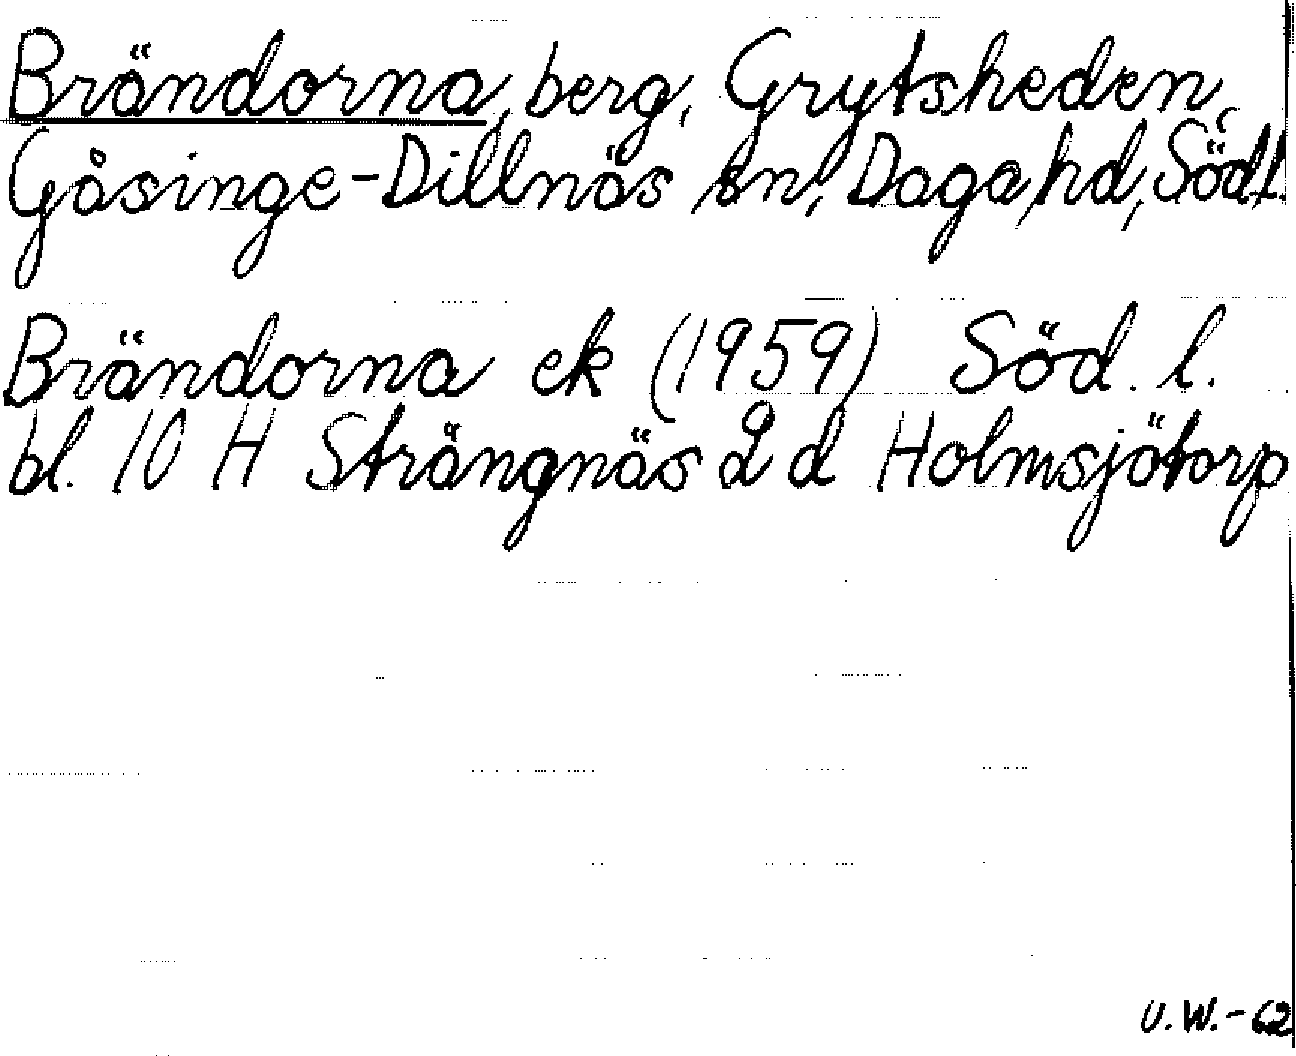 Brändorna, berg, Grytsheden,
Gåsinge-Dillnäs sn, Daga hd, Södl.
Brändorna ek (1959) Söd. l.
bl. 10 H Strängnäs 2 d Holmsjötorp
U.W.-62